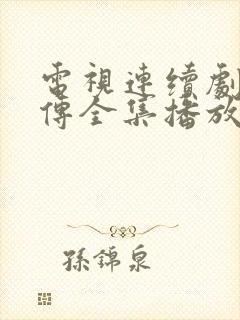 電視連續劇
傳全集播放
孫錦泉